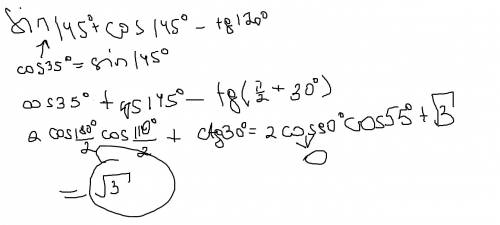 sin 145° + cos 145° - tg 120°
cos 35° = sin 145°
cos 35° + cos 145° - tg(π/2 + 30°)
2 cos 180°/2 cos 110°/2 + ctg 30° = 2 cos 90° cos 55° + √3
0
= √3